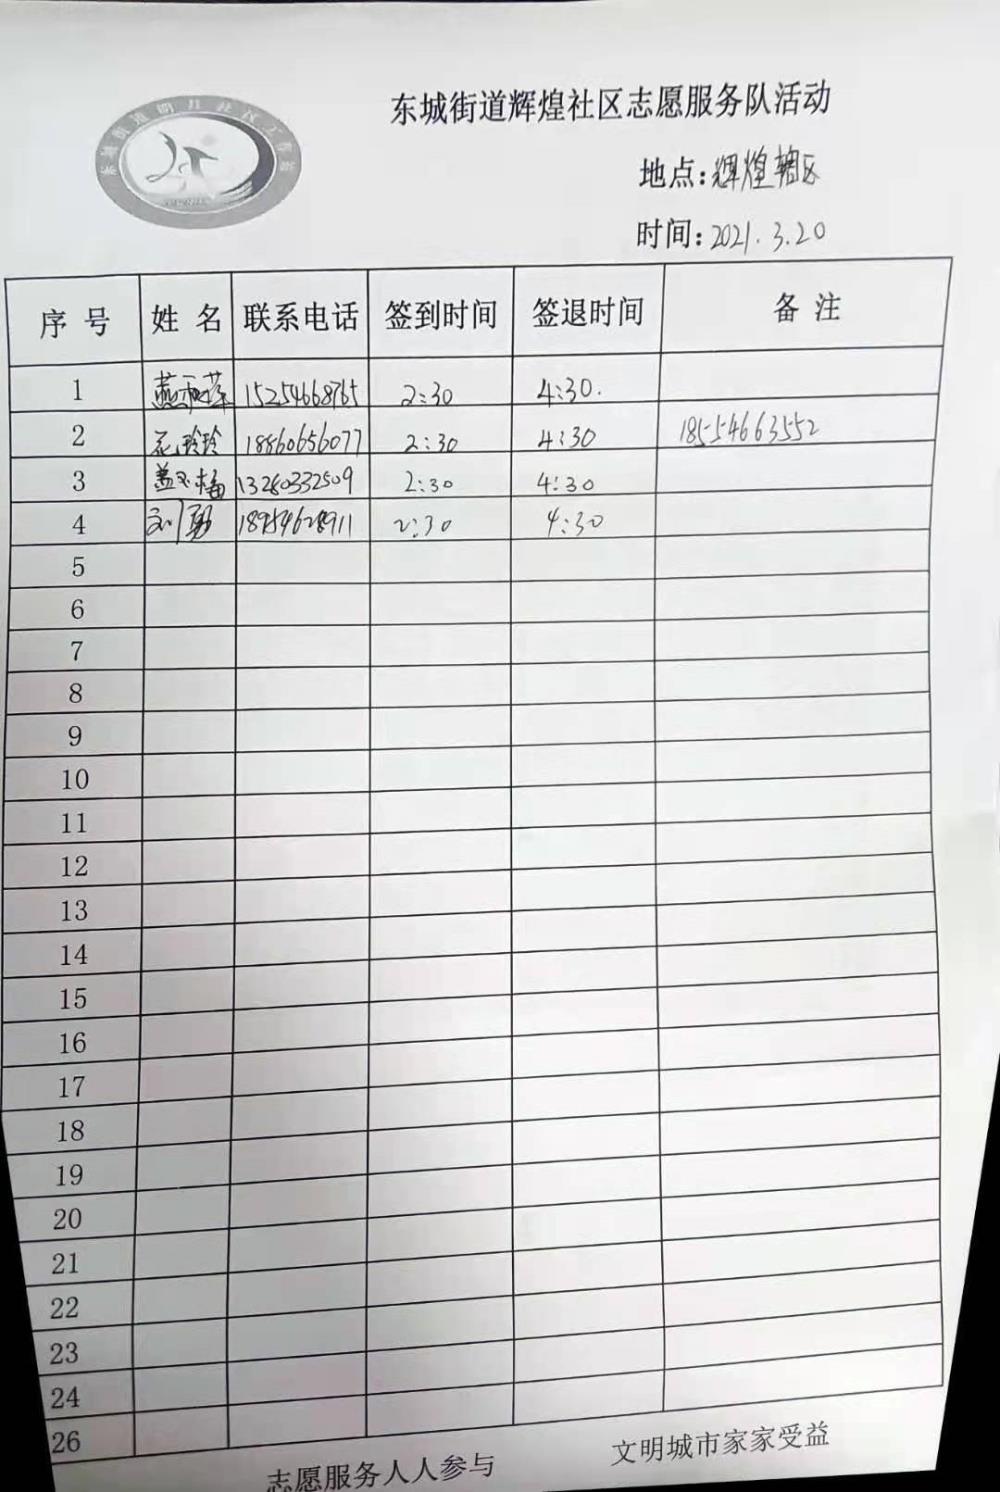 东城街道明月社区工作站
东城街道辉煌社区志愿服务队活动
地点:辉煌辖区
时间:2021.3.20
序号 姓名 联系电话 签到时间 签退时间 备注
1 15254668765 2:30 4:30.
2 花玲玲 18860656077 2:30 4:30 18554663552
3 盖玉梅 13280332509 2:30 4:30
4 刘勇 18954628911 2:30 4:30
5
6
7
8
9
10
11
12
13
14
15
16
17
18
19
20
21
22
23
24
26
志愿服务人人参与 文明城市家家受益